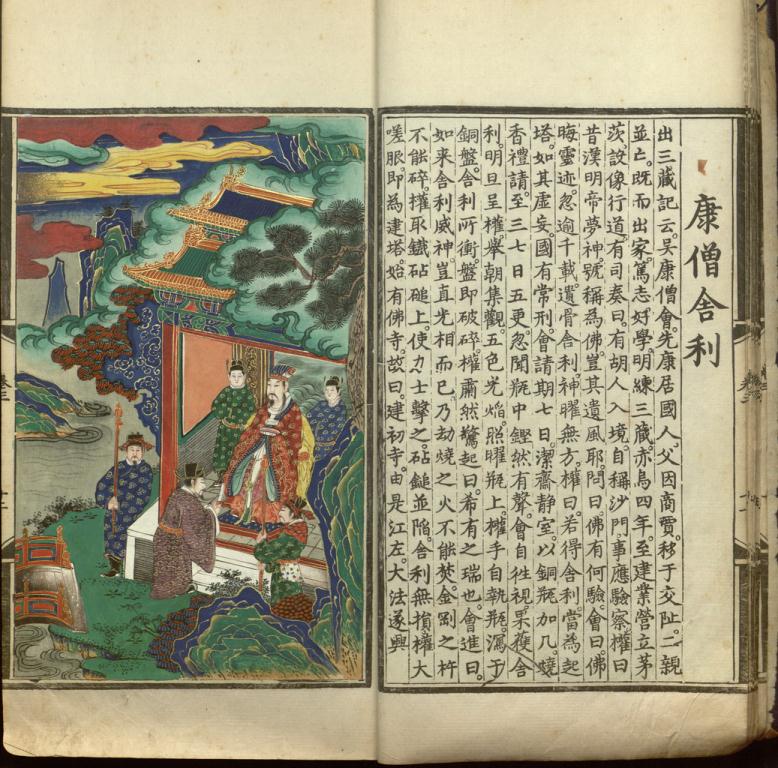 康僧舍利
出三藏記云。吴康僧會。先康居國人。父因商賈。移于交阯。二親
並亡。既而出家。篤志好學。明練三藏。赤烏四年。至建業。營立茅
茨。設像行道。有司奏曰。有胡人入境。自稱沙門。事應驗察。權曰
昔漢明帝夢神。號稱為佛。豈其遺風耶。問曰。佛有何驗。會曰。佛
晦靈迹。忽逾千載。遺骨舍利。神曜無方。權曰。若得舍利。當為起
塔。如其虛妄。國有常刑。會請期七日。潔齋静室。以銅瓶加几。燒
香禮請。至三七日五更。忽聞瓶中鏗然有聲。會自往視。果獲舍
利。明旦呈權。舉朝集觀。五色光焰。照曜瓶上。權手自執瓶。瀉于
銅盤。舍利所衝。盤即破碎。權肅然驚起曰。希有之瑞也。會進曰。
如来舍利威神。豈直光相而已。乃劫燒之火不能焚。金剛之杵
不能碎。權取鐵砧磓上。使力士擊之。砧鎚並陷。舍利無損。權大
嗟服。即為建塔。始有佛寺。故曰。建初寺。由是江左。大法遂興